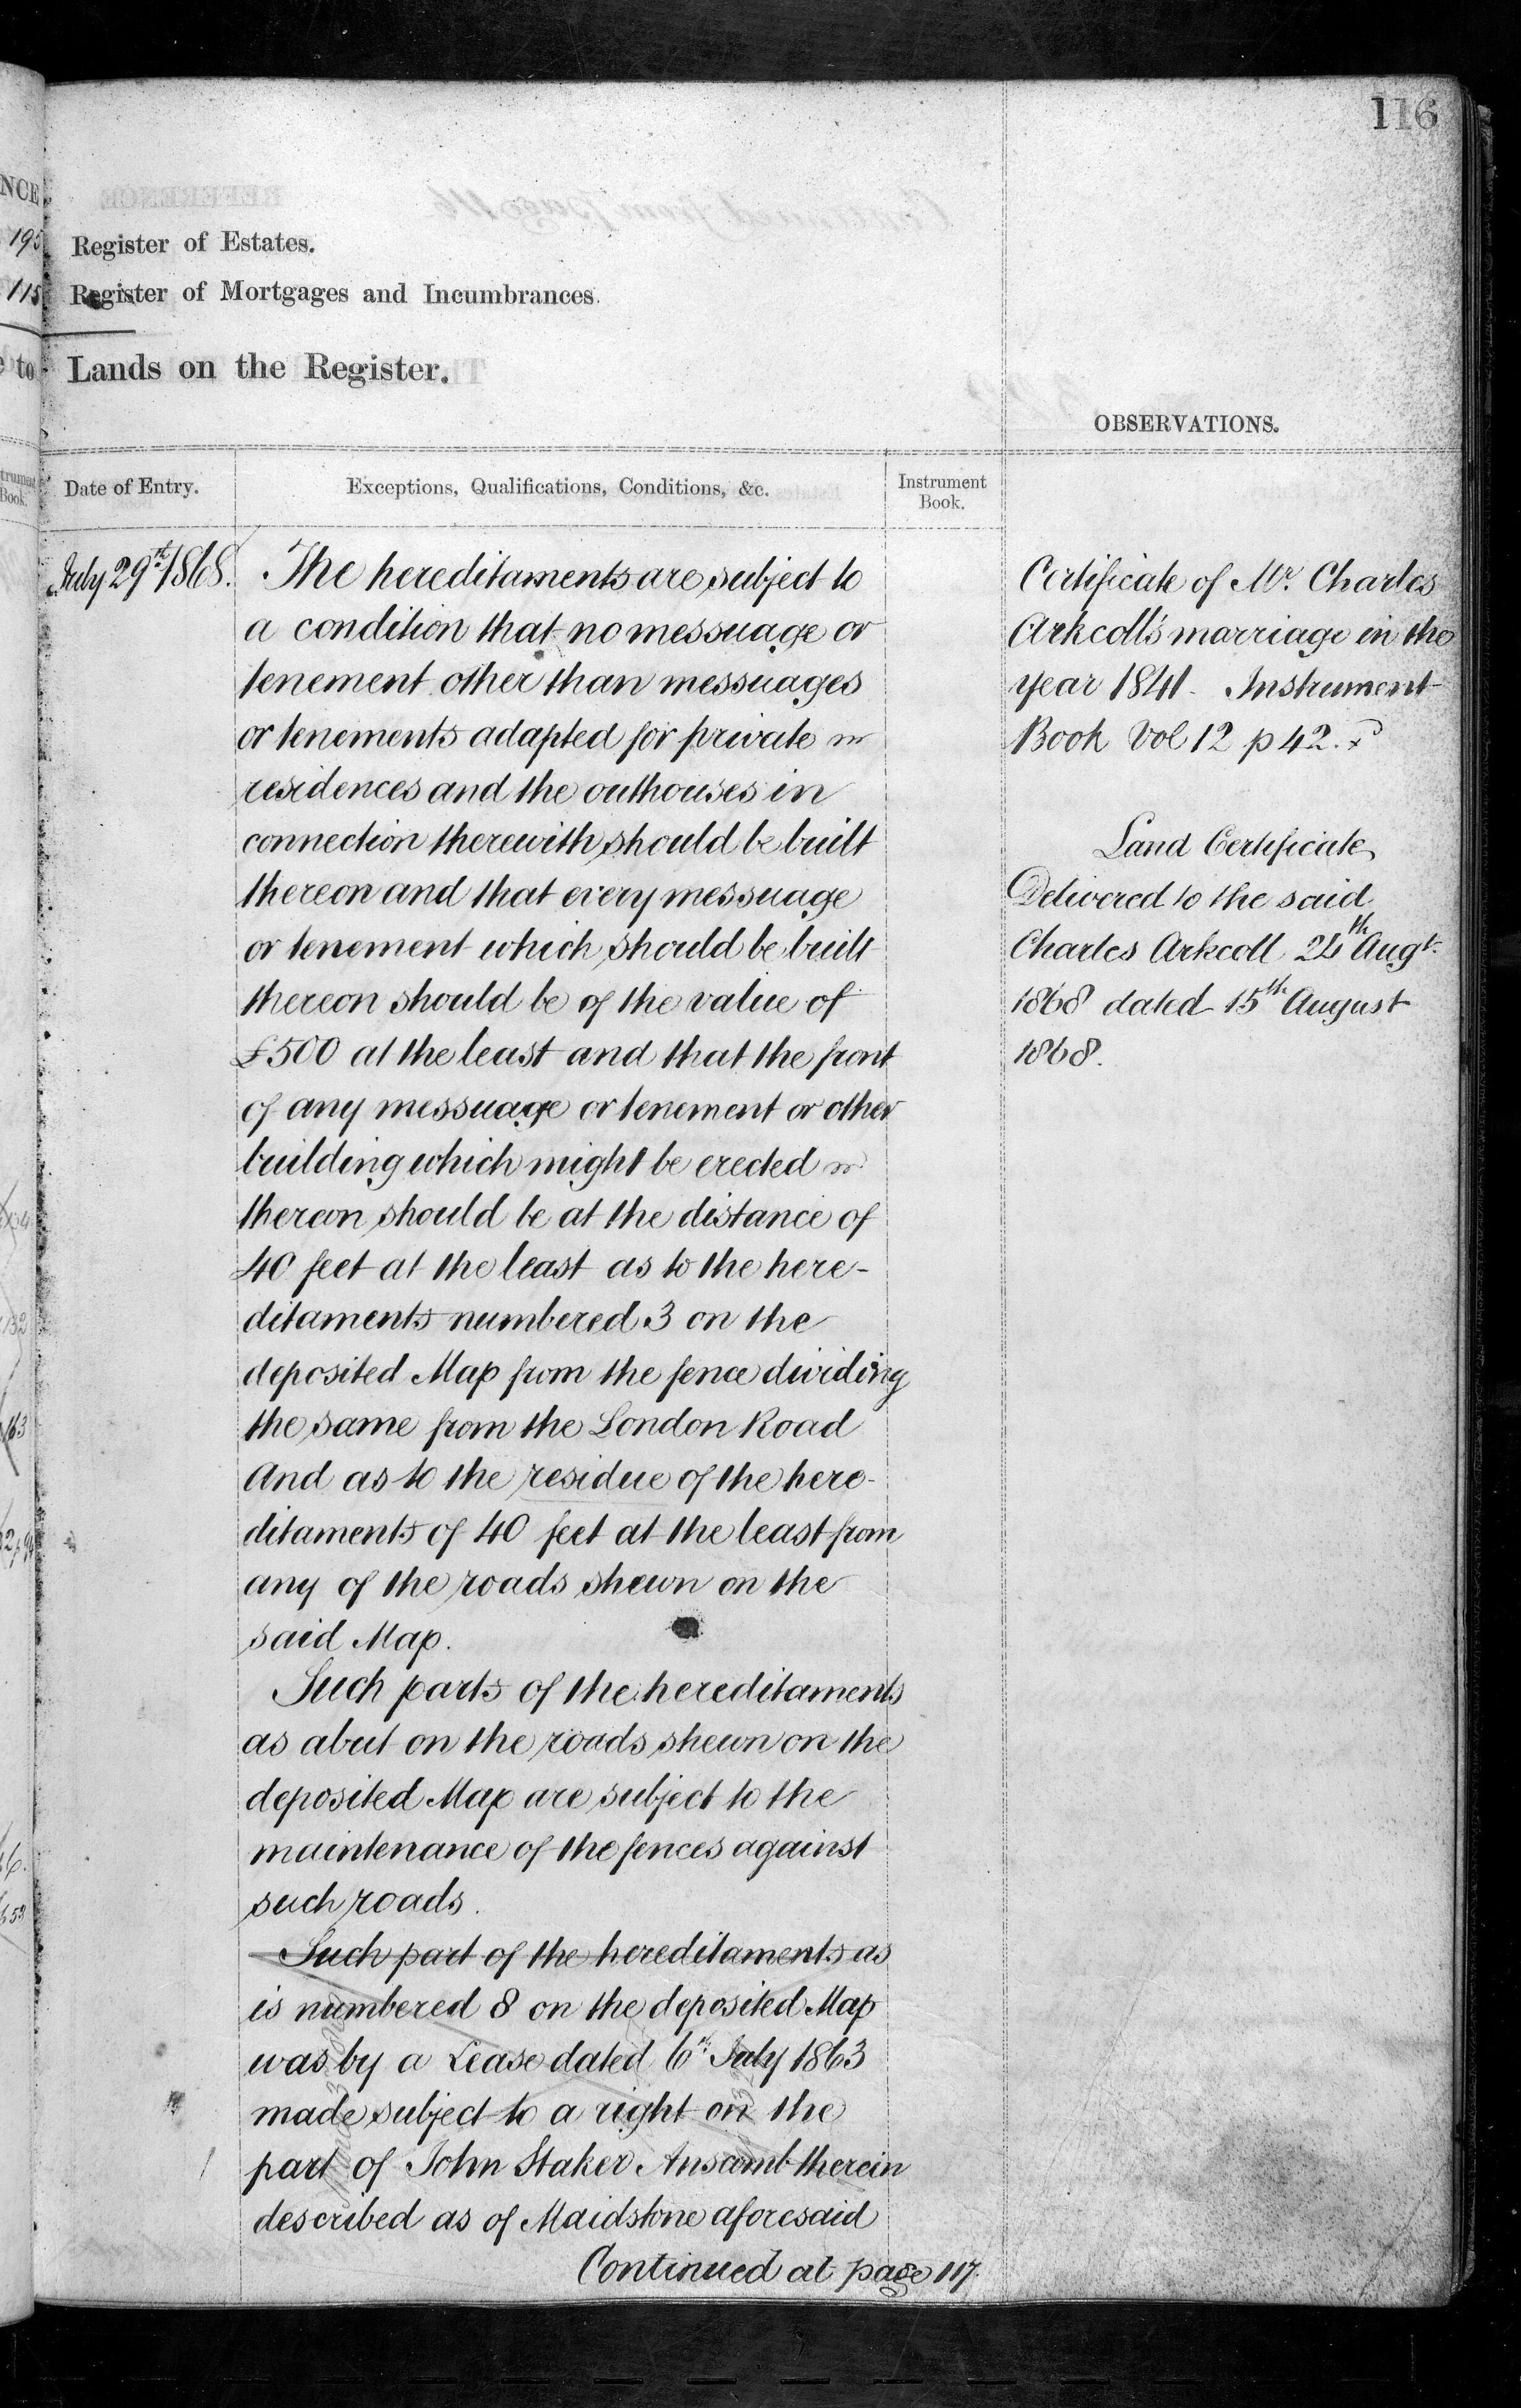 116
NCE
195
115
Register of Estates.
Register of Mortgages and Incumbrances.
to
Lands on the Register.
OBSERVATIONS.
Date of Entry.
Exceptions, Qualifications, Conditions, &c.
Instrument
Book.
July 29th 1868.
The hereditaments are subject to
a condition that no messuage or
tenement other than messuages
or tenements adapted for private
residences and the outhouses in
connection therewith should be built
thereon and that every messuage
or tenement which should be built
thereon should be of the value of
£500 at the least and that the front
of any messuage or tenement or other
building which might be erected
thereon should be at the distance of
40 feet at the least as to the here-
ditaments numbered 3 on the
deposited Map from the fence dividing
the same from the London Road
And as to the residue of the here-
ditaments of 40 feet at the least from
any of the roads shewn on the
said Map.
Such parts of the hereditaments
as abut on the roads shewn on the
deposited Map are subject to the
maintenance of the fences against
such roads.
Such part of the hereditaments as
is numbered 8 on the deposited Map
was by a Lease dated 6th July 1863
made subject to a right on the
part of John Staker Anscomb therein
described as of Maidstone aforesaid
Continued at page 117.
Certificate of Mr. Charles
Arkcoll's marriage in the
year 1841. Instrument
Book Vol 12 p 42.
Land Certificate
Delivered to the said
Charles Arkcoll 24th Augt.
1868 dated 15th August
1868.